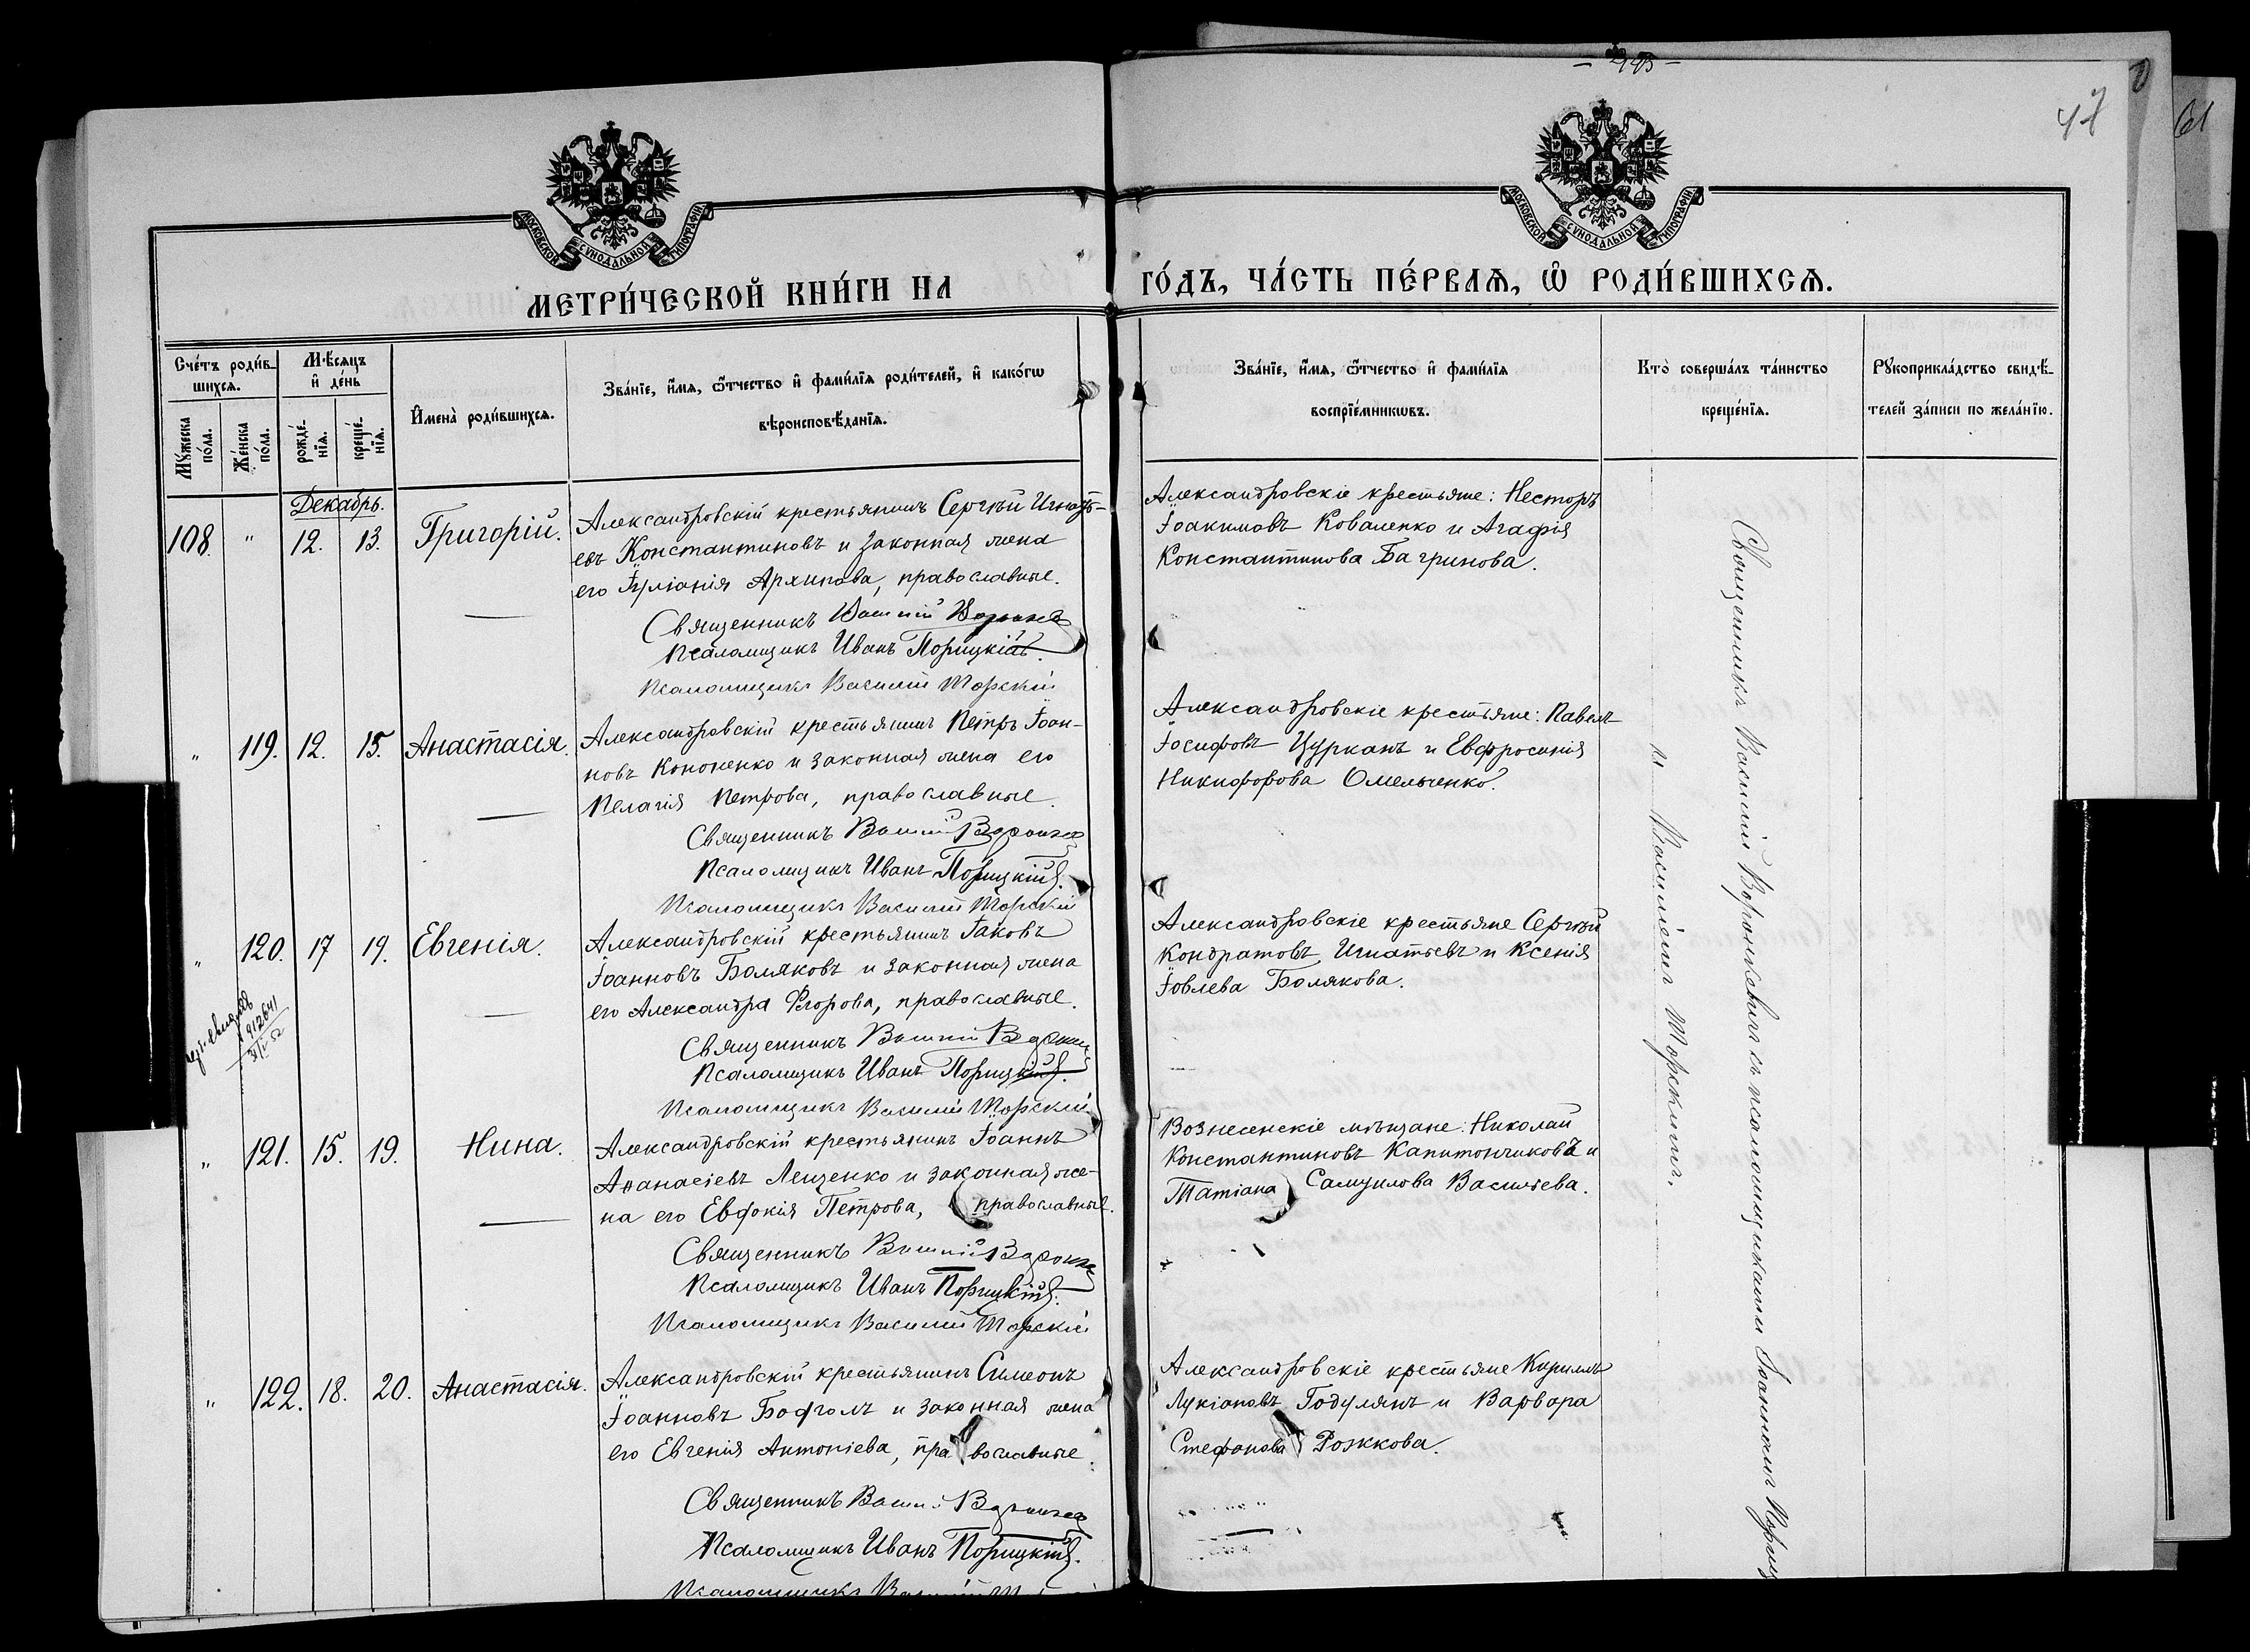 — 445 —
47
61
МОСКОВСКОЙ СѴНОДАЛЬНОЙ ТИПОГРАФІИ
МОСКОВСКОЙ СѴНОДАЛЬНОЙ ТИПОГРАФІИ
МЕТРИ́ЧЕСКОЙ КНИ́ГИ НА ГО́ДЪ, ЧА́СТЬ ПЕ́РВАЯ, Ѡ РОДИ́ВШИХСЯ.
Сче́тъ роди́в-
шихся.
Му́жеска
по́ла.
Же́нска
по́ла.
Мѣ́сяцъ
и де́нь
рожде́-
нія.
креще́-
нія.
Имена̀ роди́вшихся.
Зва́ніе, и́мя, ѻ́тчество и фами́лія роди́телей, и како́гѡ
вѣроисповѣ́данія.
Зва́ніе, и́мя, ѻ́тчество и фами́лія
воспріе́мникѡвъ.
Кто̀ соверша́лъ та́инство
креще́нія.
Рꙋкоприкла́дство свидѣ́-
телей за́писи по жела́нію.
Декабрь.
108. " 12. 13. Григорій.
Александровскій крестьянинъ Сергѣй Игнать-
евъ Константиновъ и законная жена
его Іуліанія Архипова, православные.
Священникъ Василій
Псаломщикъ Иванъ Порицкій.
Псаломщикъ Василій Торскій
Александровскіе крестьяне: Несторъ
Іоакимовъ Коваленко и Агафія
Константинова Багринова.
" 119. 12. 15. Анастасія.
Александровскій крестьянинъ Петръ Іоан-
новъ Кононенко и законная жена его
Пелагія Петрова, православные.
Священникъ Василій
Псаломщикъ Иванъ Порицкій.
Псаломщикъ Василій Торскій
Александровскіе крестьяне: Павелъ
Іосифовъ Цурканъ и Евфросинія
Никифорова Омельченко.
" 120. 17 19. Евгенія.
912641
Александровскій крестьянинъ Іаковъ
Іоанновъ Боляковъ и законная жена
его Александра Егорова, православные.
Священникъ Василій
Псаломщикъ Иванъ Порицкій.
Псаломщикъ Василій Торскій
Александровскіе крестьяне Сергѣй
Кондратовъ Игнатьевъ и Ксенія
Іовлева Болякова.
" 121. 15. 19. Нина.
Александровскій крестьянинъ Іоаннъ
Аѳанасіевъ Лещенко и законная же-
на его Евдокія Петрова, православные.
Священникъ Василій
Псаломщикъ Иванъ Порицкій.
Псаломщикъ Василій Торскій
Вознесенскіе мѣщане: Николай
Константиновъ Капитончиковъ и
Татіана Самуилова Васильева.
" 122. 18. 20. Анастасія.
Александровскій крестьянинъ Симеонъ
Іоанновъ и законная жена
его Евгенія Антоніева, православные.
Священникъ Василій
Псаломщикъ Иванъ Порицкій.
Псаломщикъ
Александровскіе крестьяне Кириллъ
Лукіановъ Годулянъ и Варвара
Стефанова Рожкова.
Священникъ Василій Воронкевичъ съ псаломщиками Іоанномъ
и Василіемъ Торскимъ.